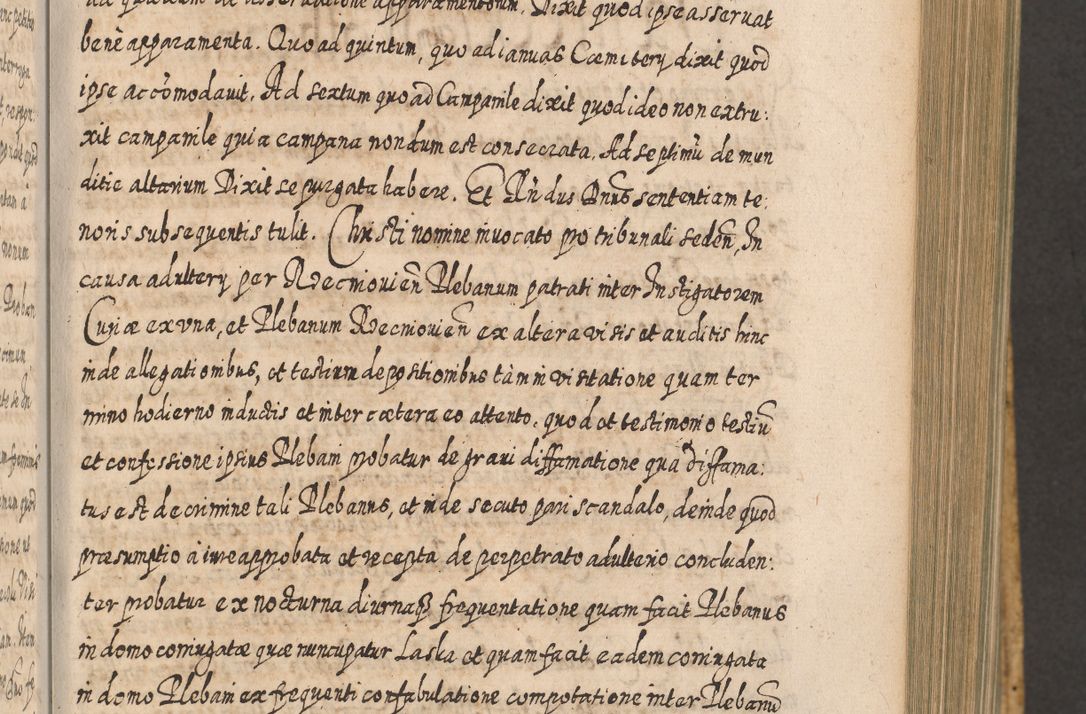 ad quartum de asseruatione apparamentorum. Dixit quod ipse asseruat
benè apparamenta. Quo ad quintum, quo ad ianuas Cæmitery dixit quod
ipse accõmodauit. Ad sextum quo ad Campanile dixit quod ideo non extru:
xit campanile quia campana nondum est consecrata. Ad septimũ de mun
ditie altarium Dixit se purgata habere. Et Rñdus Dnus sententiam te:
noris subsequentis tulit. Christi nomine inuocato pro tribunali sedeñ, In
causa adultery per Rzecniouieñ Plebanum patrati inter Instigatorem
Curiæ ex vna, et Plebanum Rzecniouieñ ex altera visis et auditis hinc
inde allegationibus, et testium depositionibus tàm in visitatione quam ter
mino hodierno inductis et inter cætera eo attento, quod et testimonio testiũ
et confessione ipsius Plebani probatur de graui diffamatione qua diffama:
tus est de crimine tali Plebanus, et inde secuto pari scandalo, deinde quod
præsumptio à iure approbata et recepta de perpetrato adulterio concluden:
ter probatur ex nocturna diurnaqȝ frequentatione quam facit Plebanus
in domo coniugatæ quæ nuncupatur Laska et quam facit eadem coniugata
in domo Plebani ex frequenti confabulatione compotatione inter Plebanũ